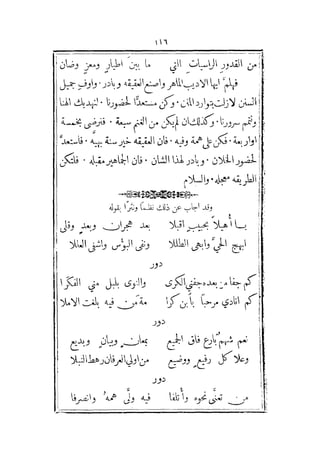 ١١٦
من القدور الراسيات التي ما بين اطيار ومعز وضان
فهلم ايها الاديب الماهر واصنع العقيقه وبادر ٠ واوف جميل
السنن لازلت بتوارد المنن ٠ وكن مستعدًا لحضورنا ٠ لنهديك الهنا
ونتمم سرورنا ٠ وكذلك ان لم يكن من الغنم سبعة ٠ فنرضى بخمسة
او اربعة ٠ فكن على همة وفيه ٠ فان العقيقه خير سنة بهيه ٠ فاستعد
لحضور الخلان ٠ وبادر لهذا الشان ٠ فان الجماهير مقبله ٠ فلتكن
الطريقه مسجله ٠ والسلام
وقد اجاب عن ذلك نظمًا ونثرًا بقوله
يا أهيلاً بحبيب اقبلا بعد هجران وبعد وقلى
ابهج الحيَّ وابهى الطللا ونفى البؤس واشفى العللا
دور
كم جفا من بعده جفني الكرى والنوى بلبل مني الفكرا
كم انادي مرحبًا يا بن كرا مة من فيه بلغت الاملا
دور
نعم شهم بارع فاق الجميع بمعان وبيان وبديع
وعلا كل رفيع ووضيع من اولي العرفان رهط النبلا
دور
من تعنَّى نحوه وأتلفا فيه ولَّى همه وانصرفا